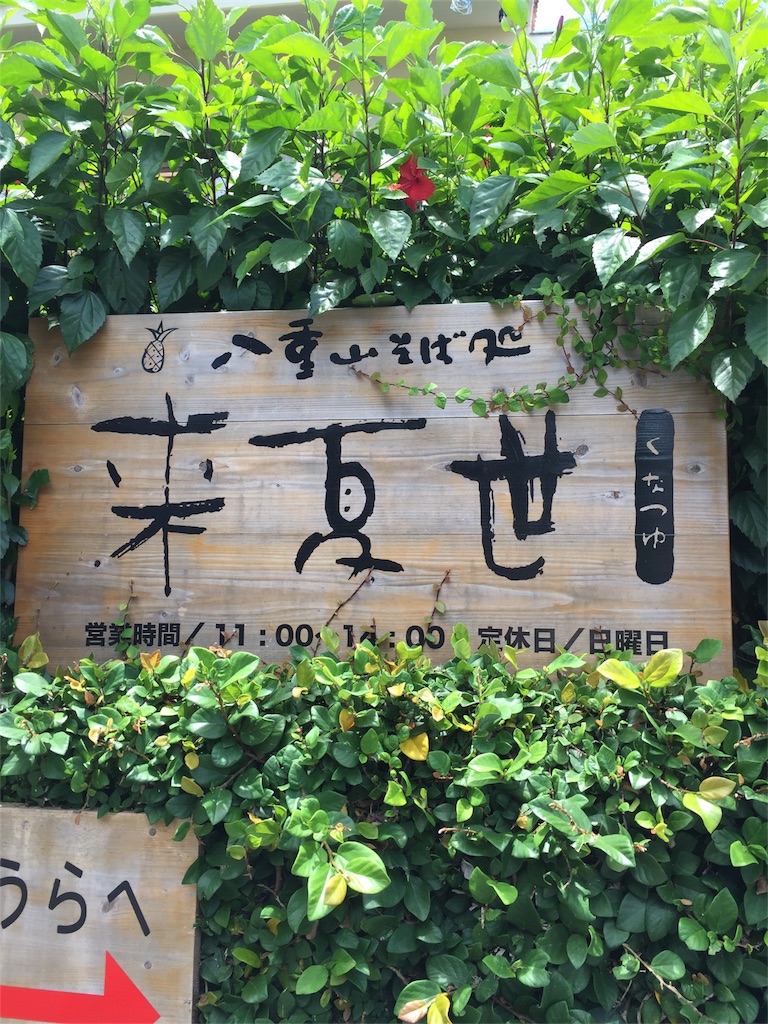 八重山そば処
来夏世
くなつゆ
営業時間／11：00〜14：00 定休日／日曜日
うらへ